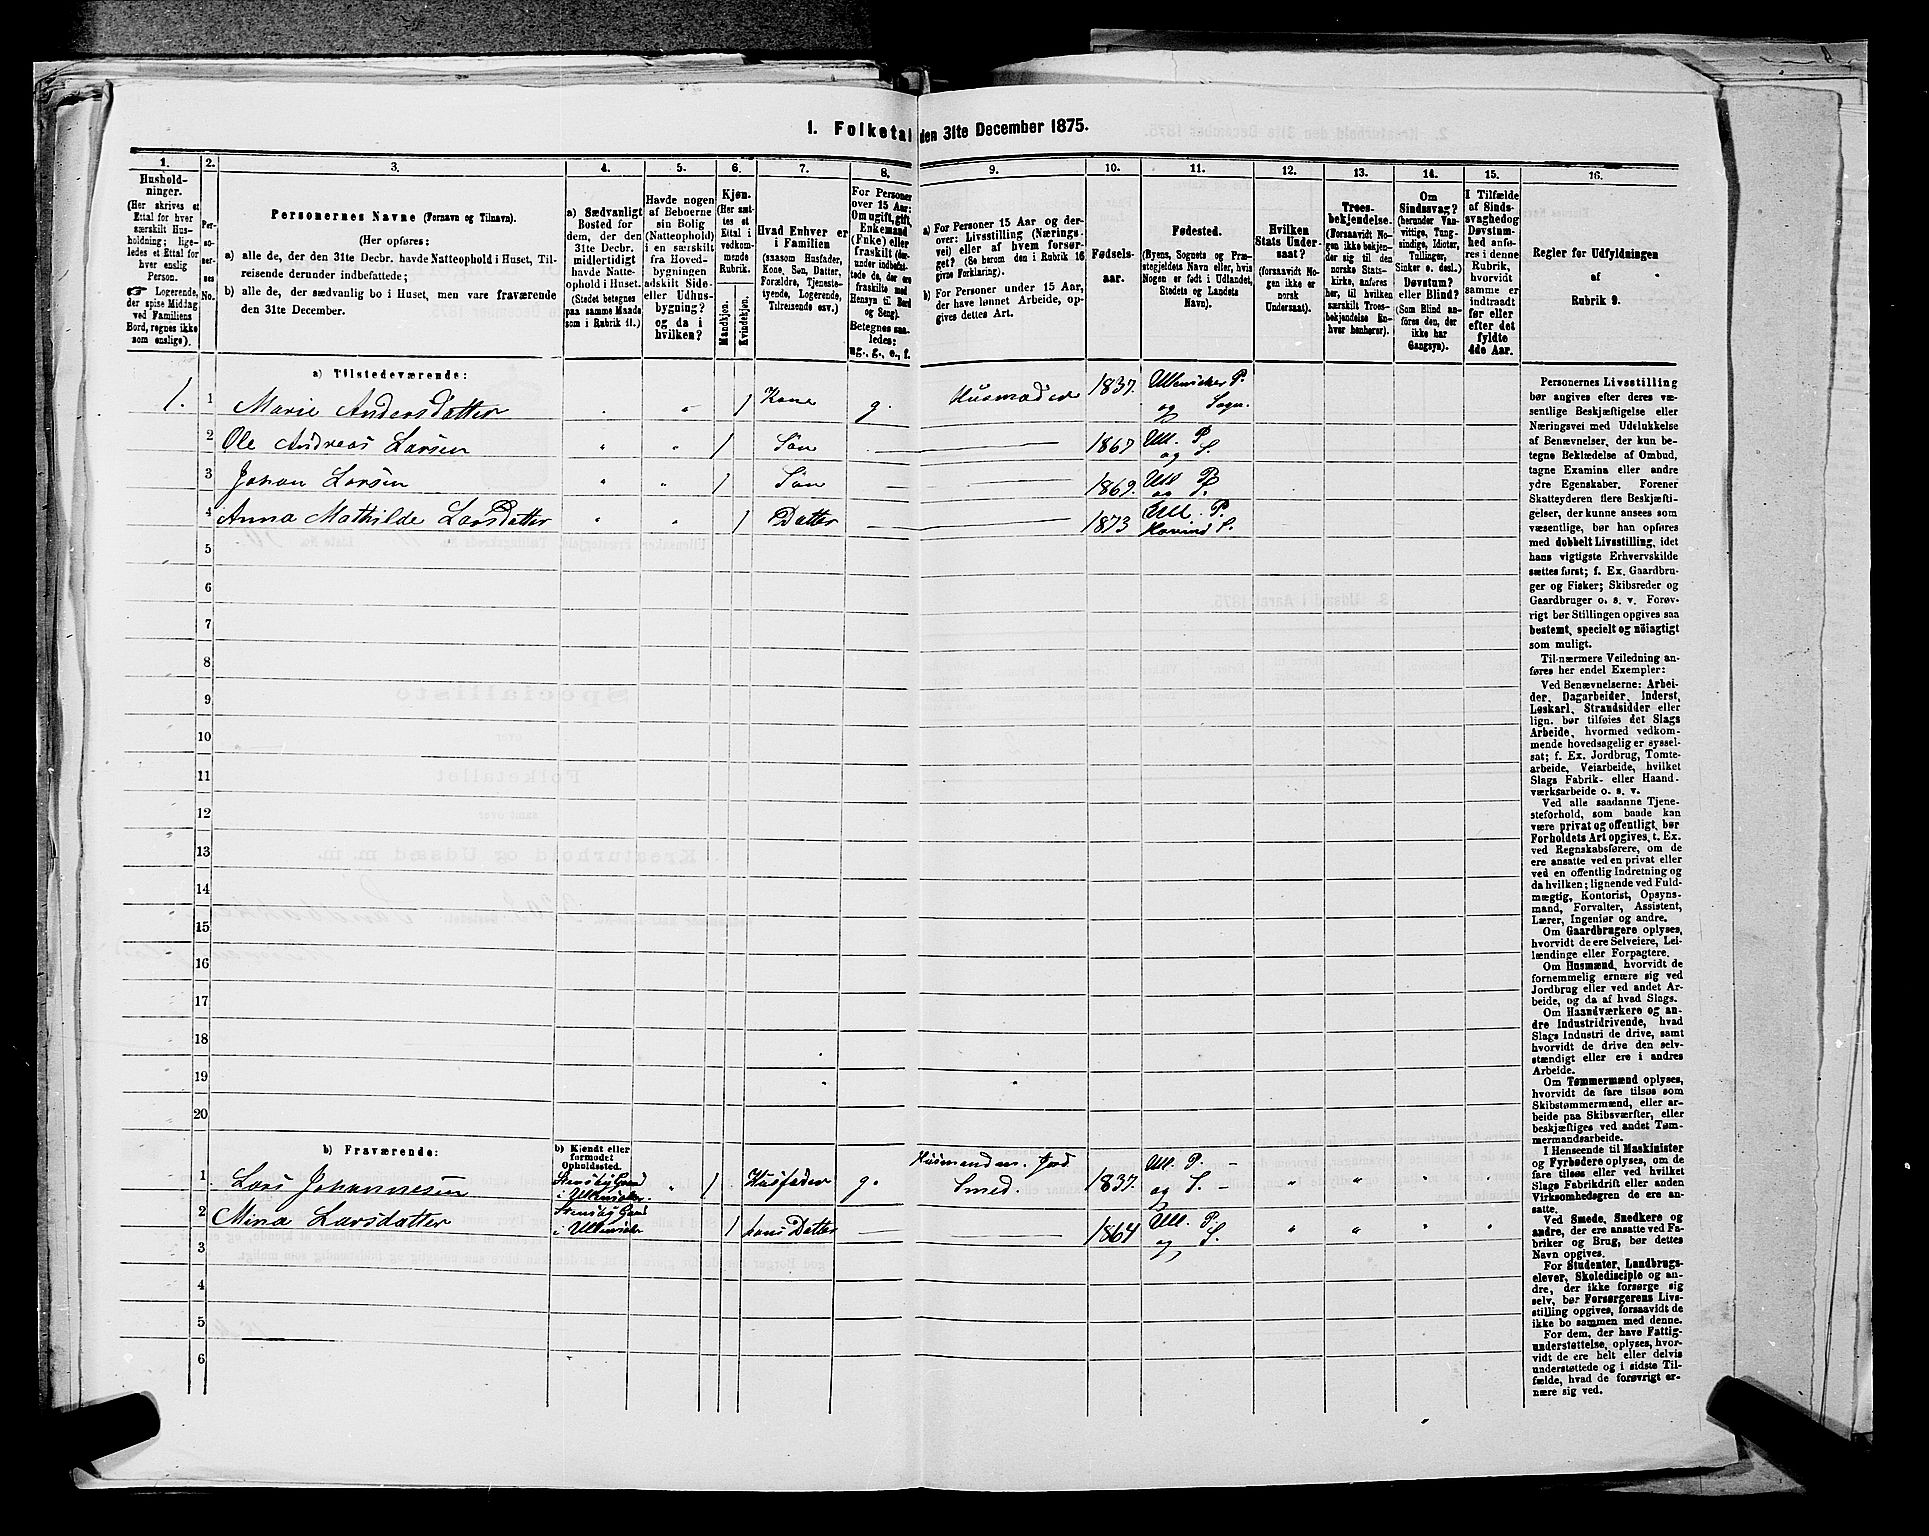 1. Folketal den 31te December 1875.
1.
Hushold-
ninger.
(Her skrives et
Ettal for hver
særskilt Hus-
holdning; lige-
ledes et Ettal for
hver enslig
Person.
☞ Logerende,
der spise Middag
ved Familiens
Bord, regnes ikke
som enslige).
2.
Per-
so-
ner-
nes
No.
3.
Personernes Navne (Fornavn og Tilnavn).
(Her opføres:
a) alle de, der den 31te Decbr. havde Natteophold i Huset, Til-
reisende derunder indbefattede;
b) alle de, der sædvanlig bo i Huset, men vare fraværende
den 31te December.
4.
a) Sædvanligt
Bosted for
dem, der den
31te Decbr.
midlertidigt
havde Natte-
ophold i Huset.
(Stedet betegnes
paa samme Maade
som i Rubrik 11.)
5.
Havde nogen
af Beboerne
sin Bolig
(Natteophold)
i en særskilt
fra Hoved-
bygningen
adskilt Side-
eller Udhus-
bygning?
og da i
hvilken?
6.
Kjøn.
(Her sæt-
tes et
Ettal i
vedkom-
mende
Rubrik.
Mandkjøn.
Kvindekjøn.
7.
Hvad Enhver er
i Familien
(saasom Husfader,
Kone, Søn, Datter,
Forældre, Tjeneste-
tyende, Logerende,
Tilreisende osv.)
8.
For Personer
over 15 Aar:
Om ugift, gift,
Enkemand
(Enke) eller
fraskilt (her-
under indbefat-
tede de, der ere
fraskilte med
Hensyn til Bord
og Seng).
Betegnes saa-
ledes:
ug., g., e., f.
9.
a) For Personer 15 Aar og der-
over: Livsstilling (Nærings-
vei) eller af hvem forsør-
get? (Se herom den i Rubrik 16
givne Forklaring).
b) For Personer under 15 Aar,
der have lønnet Arbeide, op-
gives dettes Art.
10.
Fødsels-
aar.
11.
Fødested.
(Byens, Sognets og Præ-
stegjeldets Navn eller, hvis
Nogen er født i Udlandet,
Stedets og Landets
Navn).
12.
Hvilken
Stats Under-
saat?
(forsaavidt No-
gen ikke er
norsk
Undersaat).
13.
Troes-
bekjendelse.
(Forsaavidt No-
gen ikke bekjen-
der sig til den
norske Stats-
kirke, anføres
her, til hvilken
særskilt Troes-
bekjendelse En-
hver henhører).
14.
Om
Sindssvag?
(herunder Van-
vittige, Tung-
sindige, Idioter,
Tullinger,
Sinker o. desl.)
Døvstum?
eller Blind?
(Som Blind an-
føres den, der
ikke har
Gangsyn).
15.
I Tilfælde
af Sinds-
svaghed og
Døvstum-
hed anfø-
res i denne
Rubrik,
hvorvidt
samme er
indtraadt
før eller
efter det
fyldte
4de Aar.
16.
Regler for Udfyldningen
af
Rubrik 9.
a) Tilstedeværende:
1. 1 Marie Andersdatter 1 Kone g. Husmoder 1837. Ullensaker P.
og Sogn.
2 Ole Andreas Larsen 1 Søn 1867 Ull. P.
og S.
3 Johan Larsen 1 Søn 1869. Ull
og
4 Anna Mathilde Larsdatter 1 Datter 1873 Ull. P.
Hovind S.
5
6
7
8
9
10
11
12
13
14
15
16
17
18
19
20
b) Fraværende:
b) Kjendt eller
formodet
Opholdssted.
1. Lars Johannesen i Ullensaker. 1 Husfader g. Husmand m. Jord
Smed. 1837. Ull. P.
og S.
2 Mina Larsdatter i Ullensaker 1 Datter 1864 Ull. P.
og S.
3
4
5
6
Personernes Livsstilling
bør angives efter deres væ-
sentlige Beskjæftigelse eller
Næringsvei med Udelukkelse
af Benævnelser, der kun be-
tegne Beklædelse af Ombud,
tagne Examina eller andre
ydre Egenskaber. Forener
Skatteyderen flere Beskjæfti-
gelser, der kunne ansees som
væsentlige, bør han opføres
med dobbelt Livsstilling, idet
hans vigtigste Erhvervskilde
sættes først; f. Ex. Gaardbru-
ger og Fisker; Skibsreder og
Gaardbruger o. s. v. Forøv-
rigt bør Stillingen opgives saa
bestemt, specielt og nøiagtigt
som muligt.
Til nærmere Veiledning an-
føres her endel Exempler:
Ved Benævnelserne: Arbei-
der, Dagarbeider, Inderst,
Løskarl, Strandsidder eller
lign. bør tilføies det Slags
Arbeide, hvormed vedkom-
mende hovedsagelig er syssel-
sat; f. Ex. Jordbrug, Tomte-
arbeide, Veiarbeide, hvilket
Slags Fabrik- eller Haand-
værksarbeide o. s. v.
Ved alle saadanne Tjene-
steforhold, som baade kan
være privat og offentligt, bør
Forholdets Art opgives, t. Ex.
ved Regnskabsførere, om de
ere ansatte ved en privat eller
ved en offentlig Indretning og
da hvilken; lignende ved Fuld-
mægtig, Kontorist, Opsyns-
mand, Forvalter, Assistent,
Lærer, Ingeniør og andre.
Om Gaardbrugere oplyses,
hvorvidt de ere Selveiere, Lei-
lændinge eller Forpagtere.
Om Husmænd, hvorvidt de
fornemmelig ernære sig ved
Jordbrug eller ved andet Ar-
beide, og da af hvad Slags.
Om Haandværkere og an-
dre Industridrivende, hvad
Slags Industri de drive, samt
hvorvidt de drive den selv-
stændigt eller ere i andres
Arbeide.
Om Tømmermænd oplyses,
hvorvidt de fare tilsøs som
Skibstømmermænd, eller ar-
beide paa Skibsværfter, eller
beskjæftiges ved andet Tøm-
mermandsarbeide.
I Henseende til Maskinister
og Fyrbødere oplyses, om de
fare tilsøs eller ved hvilket
Slags Fabrikdrift eller anden
Virksomhed gren de ere an-
satte.
Ved Smede, Snedkere og
andre, der ere ansatte ved Fa-
briker og Brug, bør dettes
Navn opgives.
For Studenter, Landbrugs-
elever, Skoledisciple og an-
dre, der ikke forsørge sig
selv, bør Forsørgerens Livs-
stilling opgives, forsaavidt de
ikke bo sammen med denne.
For dem, der have Fattig-
understøttelse, oplyses, hvor-
vidt de ere helt eller delvis
understøttede og i sidste Til-
fælde, hvad de forøvrigt er-
nære sig ved.